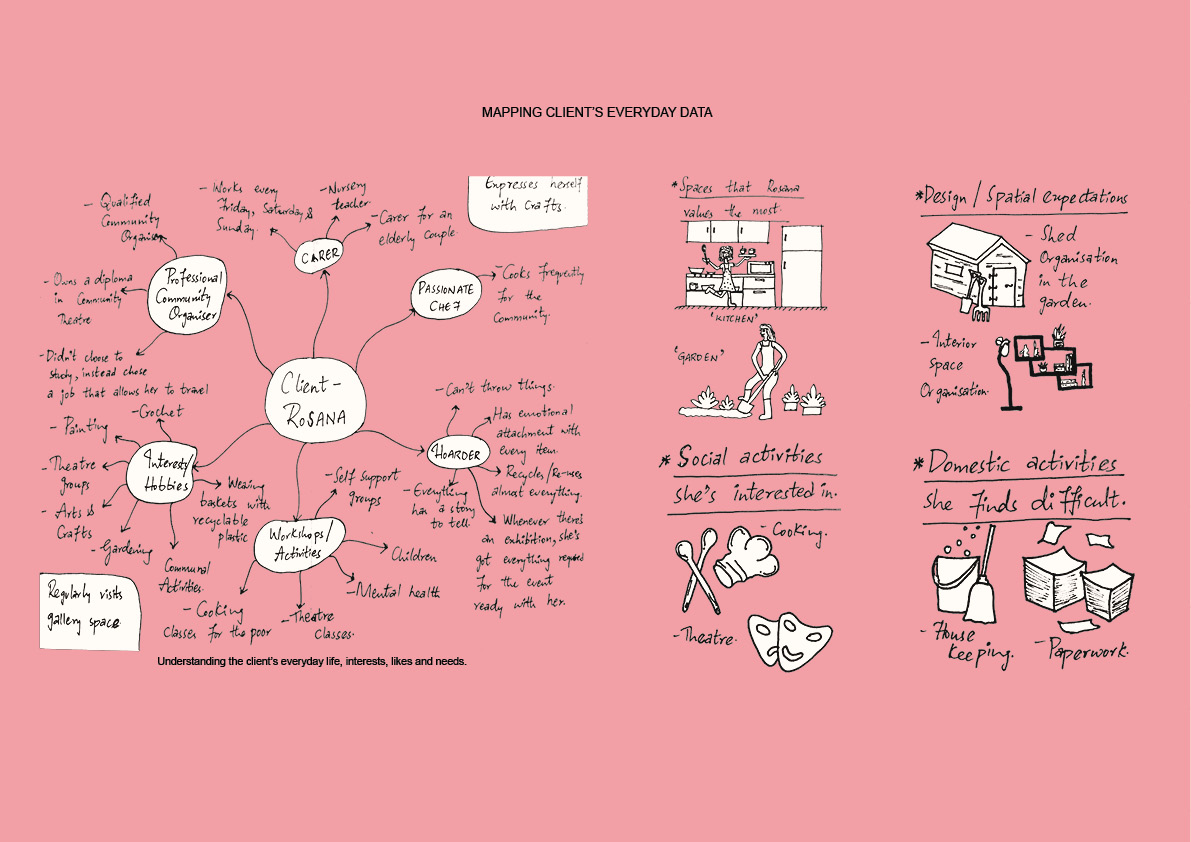 MAPPING CLIENT'S EVERYDAY DATA
Expresses herself
with Crafts.
- Qualified
Community
Organiser
- Works every
Friday, Saturday &
Sunday.
- Nursery
teacher
- Carer for an
elderly couple.
CARER
- Owns a diploma
in Community
Theatre
Professional
Community
Organiser
PASSIONATE
CHEF
- Cooks frequently
for the
Community.
- Didn't choose to
study, instead chose
a job that allows her to travel
Client -
ROSANA
- Can't throw things.
Has emotional
attachment with
every item.
HOARDER
- Recycles/Re-uses
almost everything.
- Everything
has a story
to tell
- Whenever there's
an exhibition, she's
got everything
for the event
ready with her.
- Crochet
- Painting
- Theatre
groups
- Arts &
Crafts
- Gardening
Interests/
Hobbies
baskets with
recyclable
plastic
Communal
Activities.
- Self support
groups
Workshops/
Activities
- Children
- Mental health
- Theatre
Classes.
- Cooking
Classes for the poor
Regularly visits
gallery space
Understanding the client's everyday life, interests, likes and needs.
* Spaces that Rosana
values the most.
'KITCHEN'
'GARDEN'
* Social activities
she's interested in.
- Cooking.
- Theatre.
* Design / Spatial expectations
- Shed
Organisation
in the
garden.
- Interior
Space
Organisation.
* Domestic activities
She finds difficult.
- House
keeping.
- Paperwork.